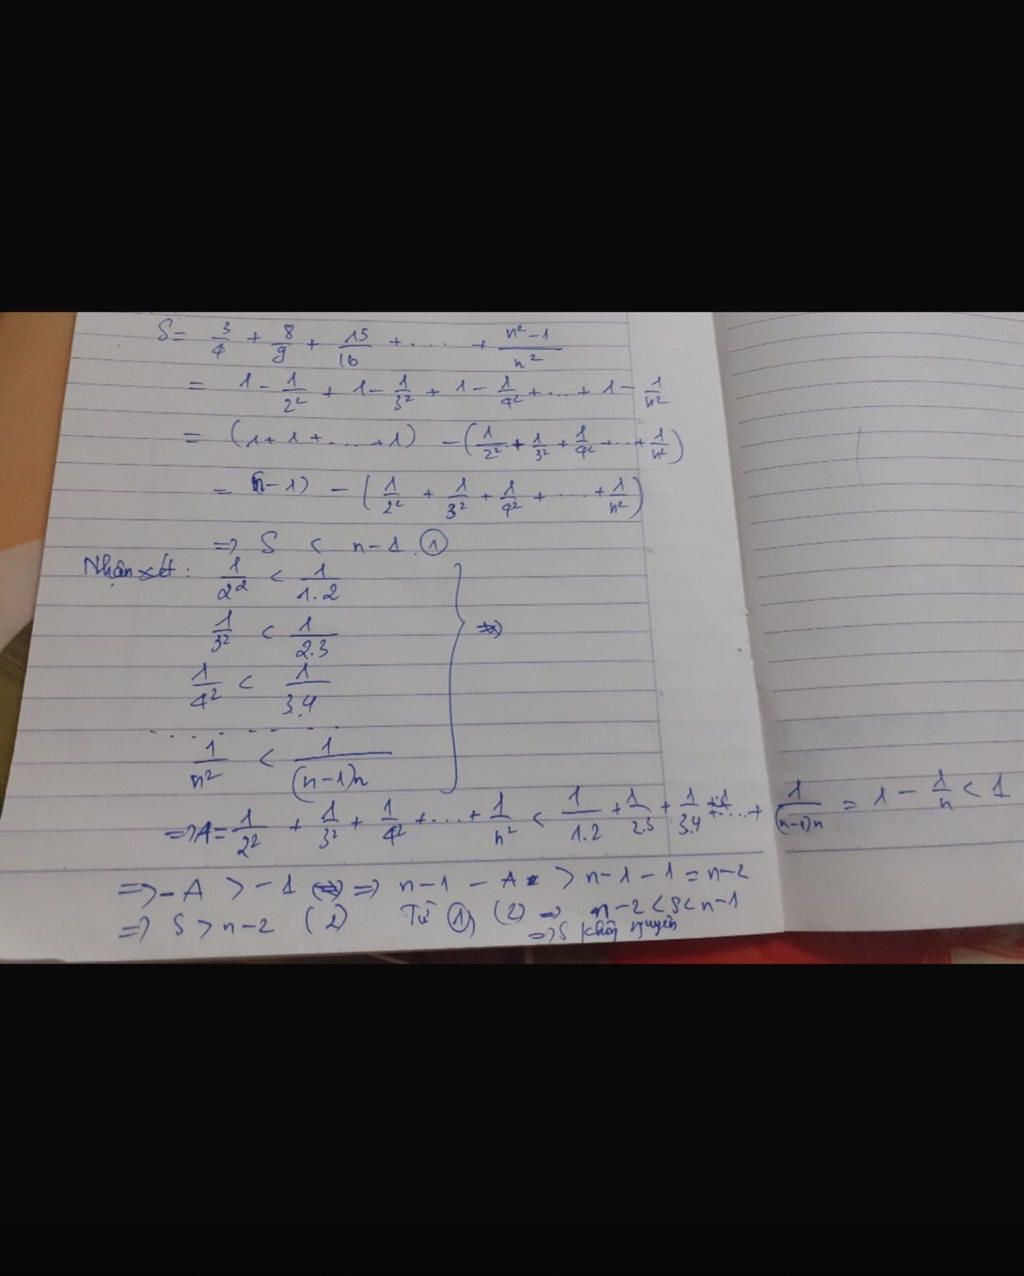 S = 3/4 + 8/9 + 15/16 + .... + n²-1/n²
= 1 - 1/2² + 1 - 1/3² + 1 - 1/4² + ... + 1 - 1/n²
= (1+1+....+1) - (1/2² + 1/3² + 1/4² + ... + 1/n²)
= (n-1) - (1/2² + 1/3² + 1/4² + .... + 1/n²)
=> S < n-1 ①
Nhận xét: 1/2² < 1/1.2
1/3² < 1/2.3 =>
1/4² < 1/3.4
........
1/n² < 1/(n-1)n
=> A = 1/2² + 1/3² + 1/4² + ... + 1/n² < 1/1.2 + 1/2.3 + 1/3.4 + ... + 1/(n-1)n = 1 - 1/n < 1
=> -A > -1 => n-1 - A > n-1-1 = n-2
=> S > n-2 (2) Từ ①, (2) => n-2 < S < n-1
=> S không nguyên